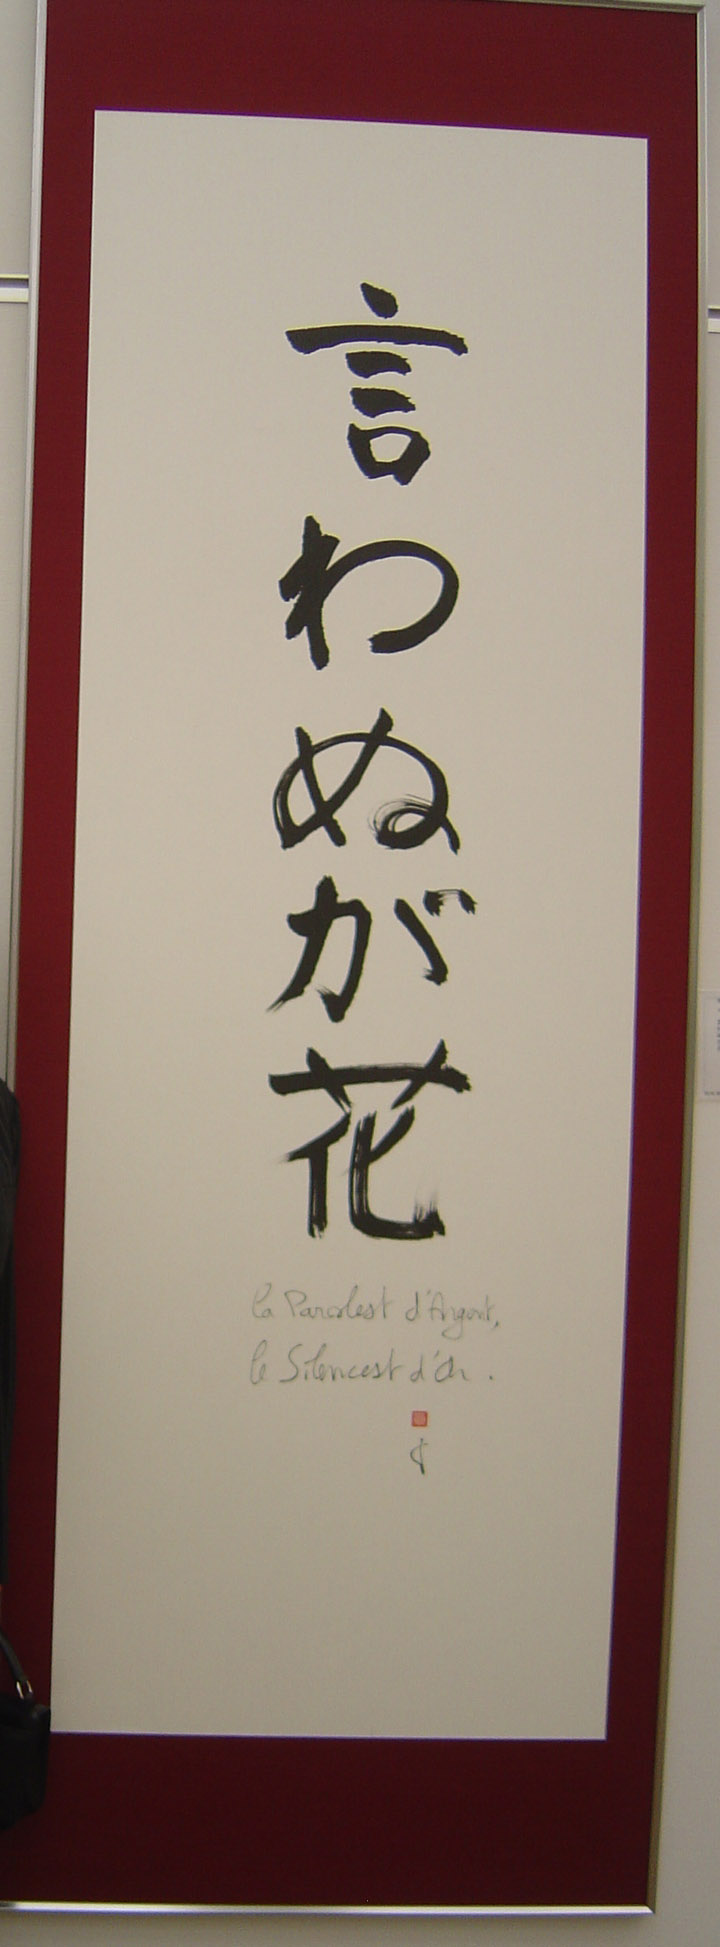 言わぬが花
la Parolest d'Argent,
le Silencest d'Or.